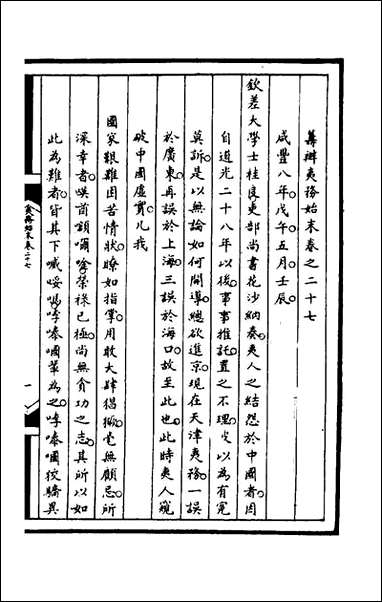 籌辦夷務始末卷之二十七
咸豐八年戊午五月壬辰
欽差大學士桂良吏部尚書花沙納奏夷人之結怨於中國者因
自道光二十八年以後事事推託置之不理皮以為有冤
莫訴是以無論如何開導總欲進京現在天津夷務一誤
於廣東再誤於上海三誤於海口故至此也此時夷人窺
破中國虛實凡我
國家艱難困苦情狀瞭如指掌用敢大肆猖獗毫無顧忌所
深幸者㗆首額囒唫榮祿已極尚無貪功之志其所以如
此為難者皆其下喊哸嗎哱㗪嗰輩為之哱㗪嗰狡驕異
夷務始末卷二十七
一